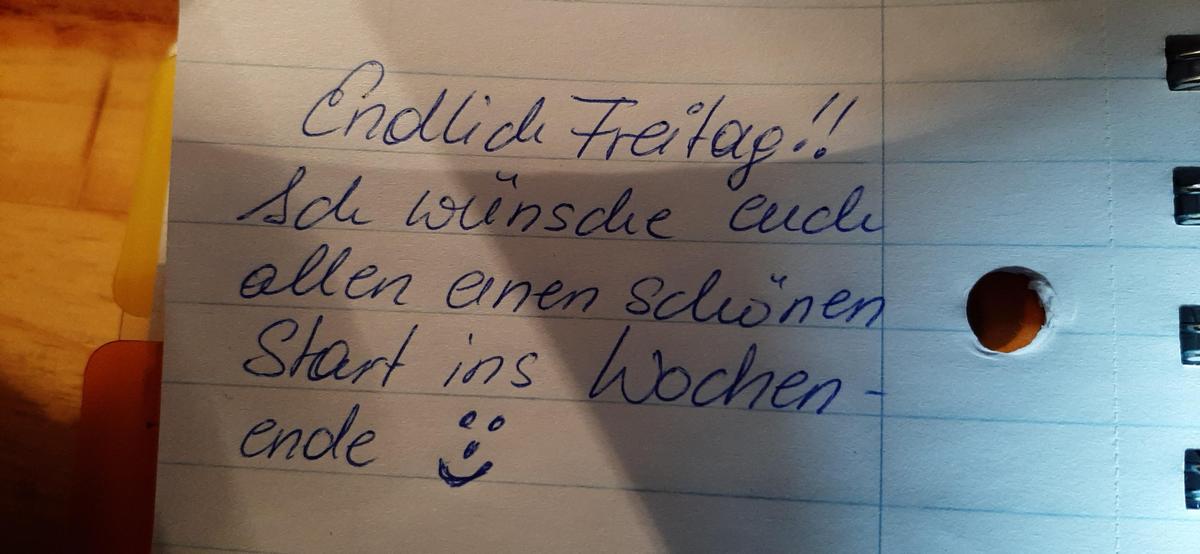 Endlich Freitag!!
Ich wünsche euch
allen einen schönen
Start ins Wochen-
ende